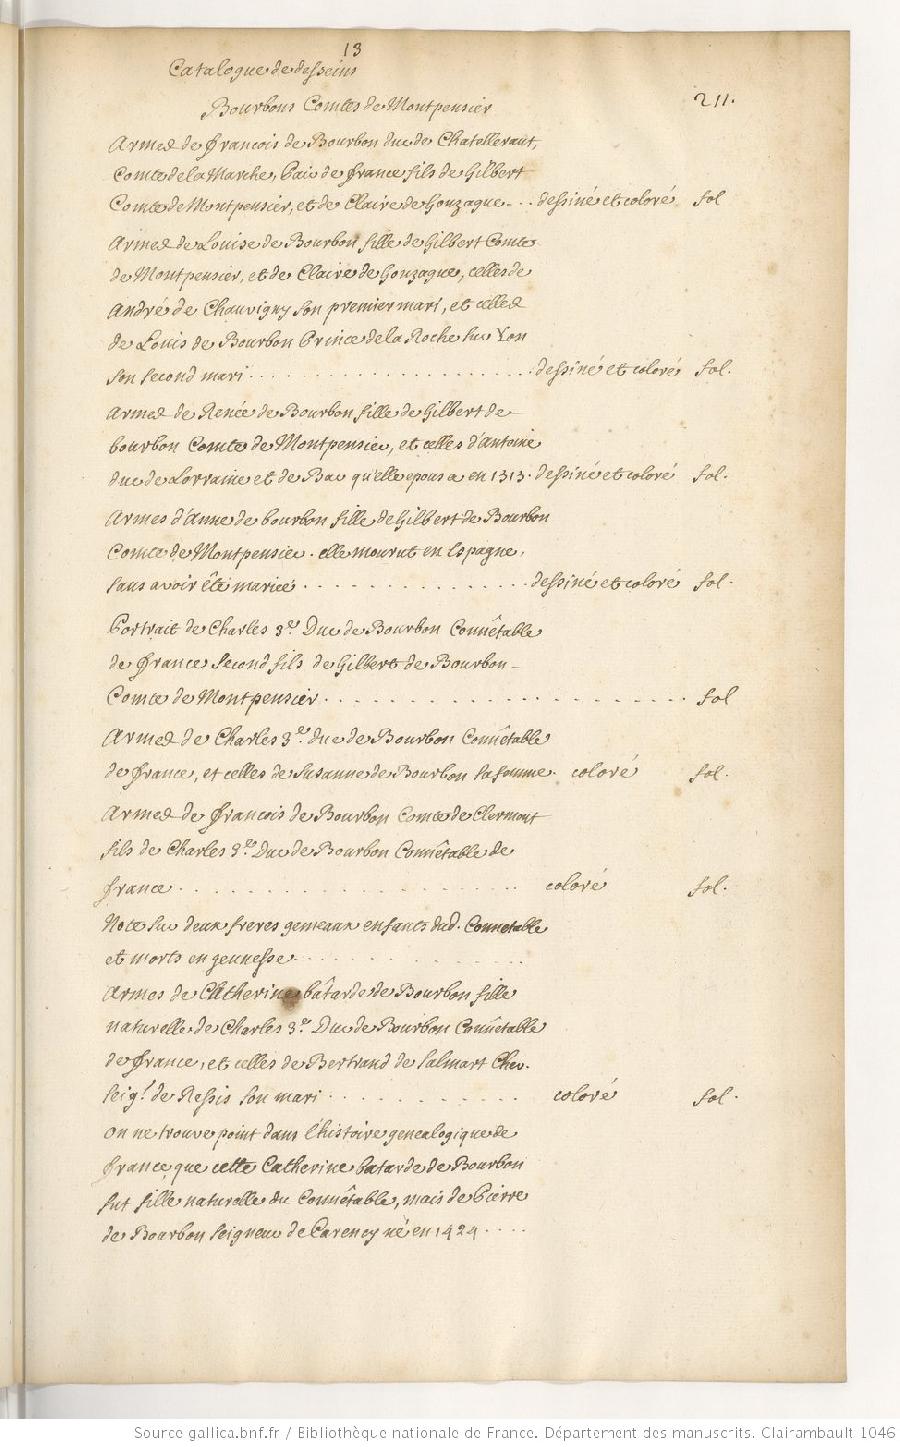 13
Catalogue de desseins
211.
Bourbons Comtes de Montpensier
Armes de francois de Bourbon duc de Chatelleraut,
Comte de la Marche, Pair de france fils de Gilbert
Comte de Montpensier, et de Claire de Gonzague - . . dessiné et coloré fol
Armes de Louise de Bourbon fille de Gilbert Comte
de Montpensier, et de Claire de Gonzague, celles de
André de Chauvigny son premier mari, et celles
de Louis de Bourbon Prince de la Roche sur Yon
son second mari . . . . . . . . . . dessiné et coloré fol.
Armes de Renée de Bourbon fille de Gilbert de
bourbon Comte de Montpensier, et celles d'antoine
duc de Lorraine et de Bar qu'elle epousa en 1515. dessiné et coloré fol.
Armes d'Anne de bourbon fille de Gilbert de Bourbon
Comte de Montpensier. elle mourut en Espagne,
sans avoir êté mariée . . . . . . . . . . dessiné et coloré fol.
Portrait de Charles 3.e Duc de Bourbon Connêtable
de france second fils de Gilbert de Bourbon -
Comte de Montpensier . . . . . . . . . . fol
Armes de Charles 3.e duc de Bourbon Connêtable
de france, et celles de Susanne de Bourbon sa femme. coloré fol.
Armes de francois de Bourbon Comte de Clermont
fils de Charles 3.e Duc de Bourbon Connêtable de
france . . . . . . . . . . coloré fol.
Note sur deux freres gemeaux enfants dud. Connetable
et morts en jeunesse . . . . . . . . . .
Armes de Catherine bâtarde de Bourbon fille
naturelle de Charles 3.e Duc de Bourbon Connêtable
de france, et celles de Bertrand de Salmart Chev.
seig.r de Ressis son mari . . . . . . . . . . coloré fol.
on ne trouve point dans l'histoire genealogique de
france que cette Catherine batarde de Bourbon
fut fille naturelle du Connêtable, mais de Pierre
de Bourbon seigneur de Carency né en 1424 . . . .
Source gallica.bnf.fr / Bibliothèque nationale de France. Département des manuscrits. Clairambault 1046